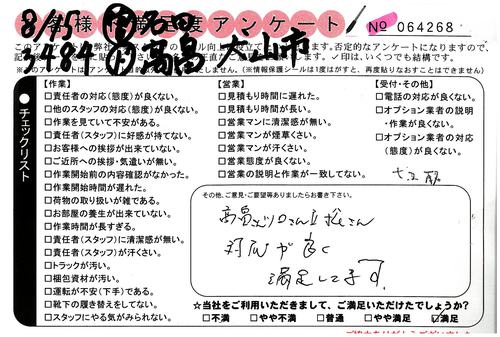 8/45 石田
お客様満足度アンケート
No 064268
3484 高畠 犬山市
✓印は、いくつでも結構です。
(※情報保護シールは1度がすと、再度貼りなおすことはできません)
●チェックリスト
【作業】
□責任者の対応(態度)が良くない。
□他のスタッフの対応(態度)が良くない。
□作業を見ていて不安がある。
□責任者(スタッフ)に好感が持てない。
□お客様への挨拶が出来ていない。
□ご近所への挨拶・気遣いが無い。
□作業開始前の内容確認がなかった。
□作業開始時間が遅れた。
□荷物の取り扱いが雑である。
□お部屋の養生が出来ていない。
□作業時間が長すぎる。
□責任者(スタッフ)に清潔感が無い。
□責任者(スタッフ)が汗くさい。
□トラックが汚い。
□梱包資材が汚い。
□運転が安(下手)である。
□靴下の履き替えをしてない。
□スタッフにやる気がみられない。
【営業】
□見積もり時間に遅れた。
□見積もり時間が長い。
□営業マンに清潔感が無い。
□営業マンが煙草くさい。
□営業マンが汗くさい。
□営業態度が良くない。
□営業の説明と作業が一致してない。
【受付・その他】
□電話の対応が良くない。
□オプション業者の説明
・作業が良くない。
□オプション業者の対応
(態度)が良くない。
その他、ご意見・ご要望等ありましたらお書き下さい。
対応が良く
満足してます。
☆当社をご利用いただきまして、ご満足いただけたでしょうか?
□不満 □やや不満 □普通 □やや満足 □満足